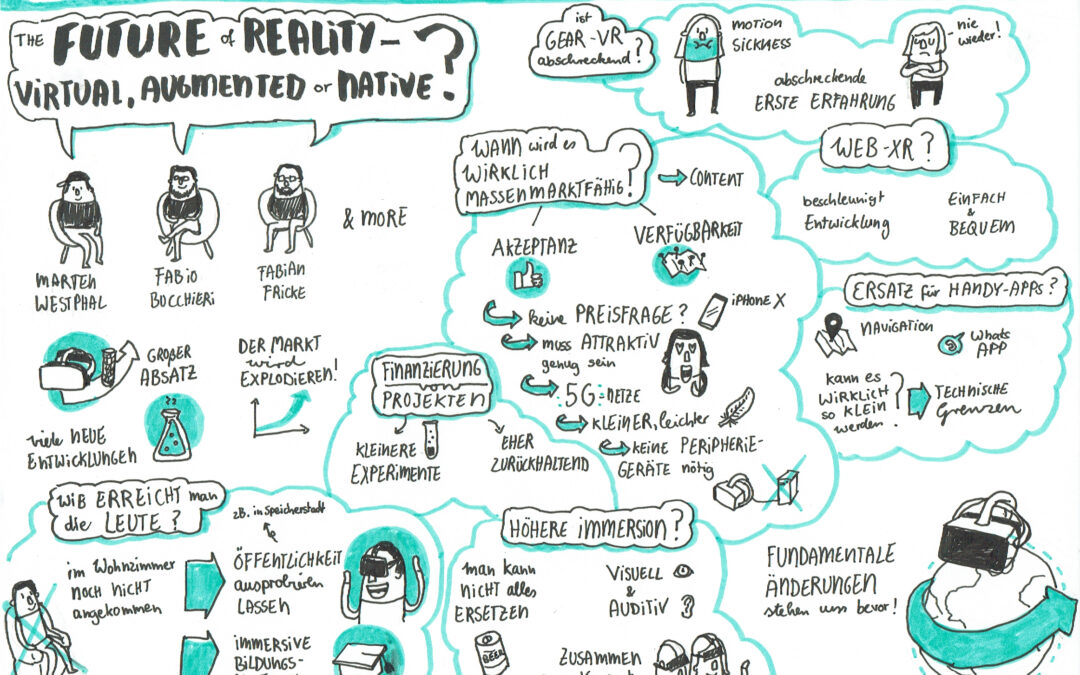 THE FUTURE of REALITY –
VIRTUAL, AUGMENTED or NATIVE?
MARTEN
WESTPHAL
FABIO
BUCCHIERI
FABIAN
FRICKE
& MORE
GROßER
ABSATZ
viele NEUE
ENTWICKLUNGEN
DER MARKT
wird
EXPLODIEREN!
ist
GEAR-VR
abschreckend?
MOTION
SICKNESS
nie
wieder!
abschreckende
ERSTE ERFAHRUNG
WANN wird es
WIRKLICH
MASSENMARKTFÄHIG?
CONTENT
AKZEPTANZ
VERFÜGBARKEIT
keine PREISFRAGE?
iPHONE X
muss ATTRAKTIV
genug sein
5G-NETZE
KLEINER, leichter
KEINE PERIPHERIE-
GERÄTE nötig
WEB-XR?
beschleunigt
Entwicklung
EINFACH
&
BEQUEM
ERSATZ für HANDY-APPS?
NAVIGATION
Whats
APP
kann es
WIRKLICH
so KLEIN
werden?
TECHNISCHE
Grenzen
FINANZIERUNG
von
PROJEKTEN
KLEINERE
EXPERIMENTE
EHER
ZURÜCKHALTEND
WIE ERREICHT man
die LEUTE?
zB. in Speicherstadt
im Wohnzimmer
NOCH NICHT
angekommen
ÖFFENTLICHKEIT
ausprobieren
LASSEN
IMMERSIVE
BILDUNGS-
HÖHERE IMMERSION?
man kann
NICHT alles
ERSETZEN
VISUELL
&
AUDITIV
BEER
ZUSAMMEN
FUNDAMENTALE
ÄNDERUNGEN
stehen uns bevor!